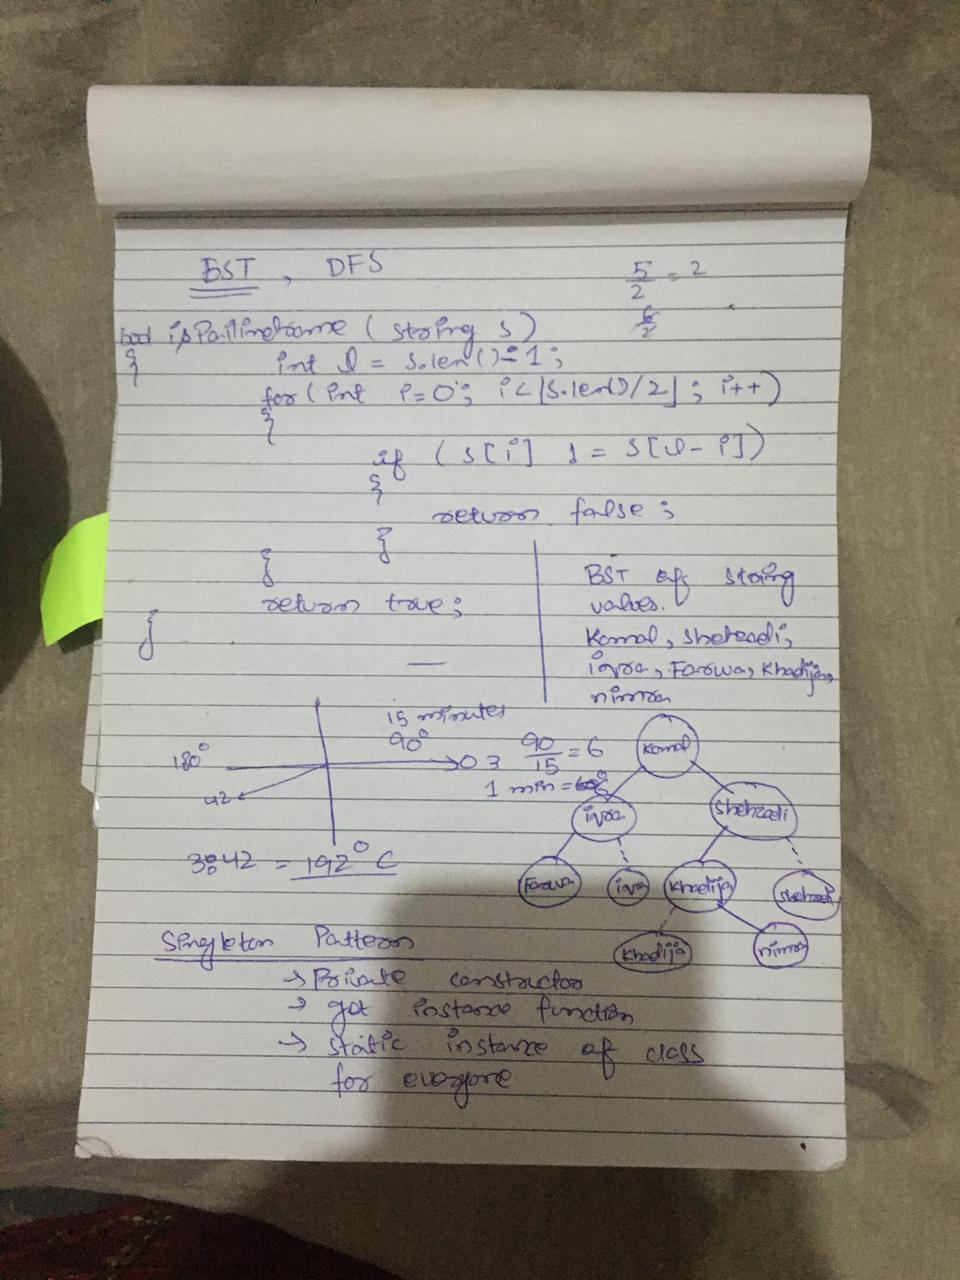 BST , DFS
5/2 = 2
6/2
bool isPailinedrome ( string s )
{
int l = s.len() - 1 ;
for ( int i = 0 ; i < ⌊s.len()/2⌋ ; i++ )
{
if ( s[i] != s[l-i] )
{
return false ;
}
}
return true ;
}
BST of string
values.
Komal, Shehzadi,
iqra, Farwa, Khadija,
nimra
15 minutes
90°
180°
3
42
90/15 = 6
1 min = 6°
3:42 = 192° C
Komal
iqra
Shehzadi
Farwa
iqra
Khadija
Shehzadi
Khadija
nimra
Singleton Pattern
→ Private constructor
→ get instance function
→ static instance of class
for everyone